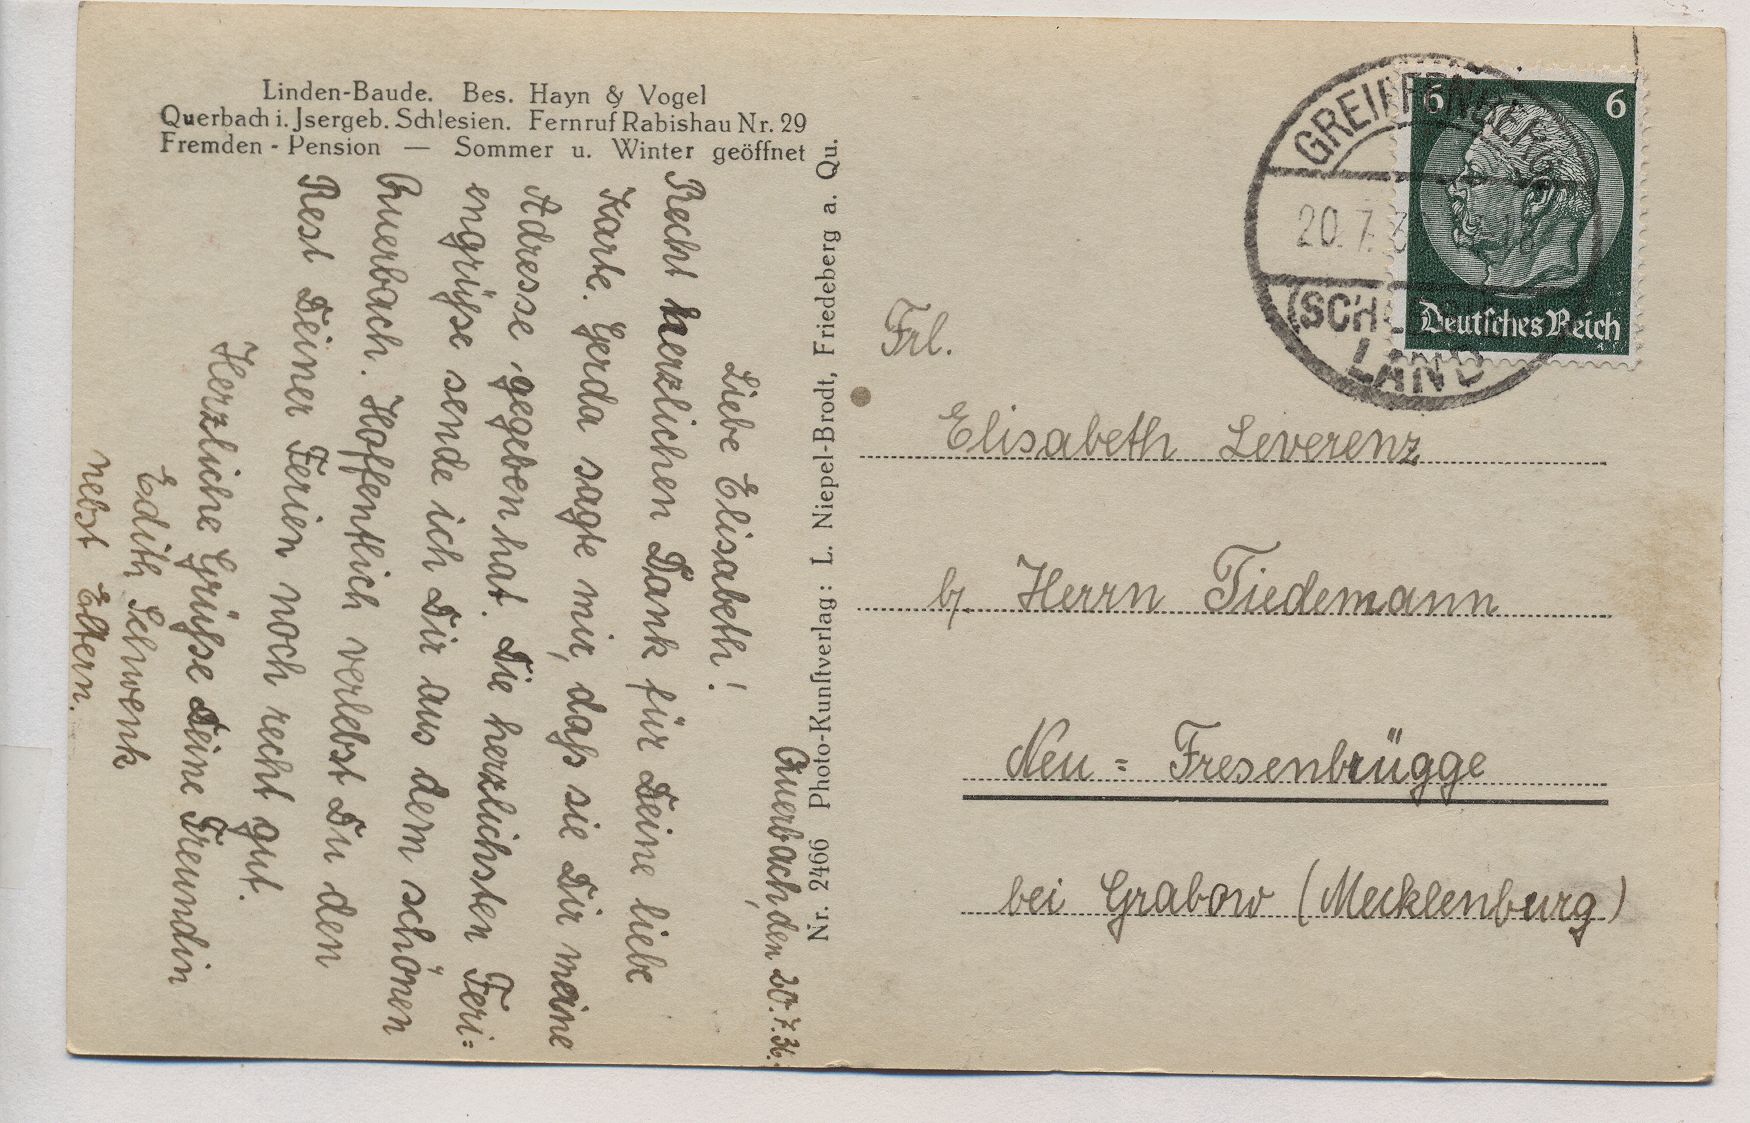 Linden-Baude. Bes. Hayn & Vogel
Querbach i. Jsergeb. Schlesien. Fernruf Rabishau Nr. 29
Fremden - Pension — Sommer u. Winter geöffnet
Querbach, den 20.7.36.
Liebe Elisabeth!
Recht herzlichen Dank für Deine liebe
Karte. Gerda sagte mir, daß sie Dir meine
Adresse gegeben hat. Die herzlichsten Feri=
engrüße sende ich Dir aus dem schönen
Querbach. Hoffentlich verlebst Du den
Rest Deiner Ferien noch recht gut.
Herzliche Grüße Deine Freundin
Edith Schwenk
nebst Eltern.
Nr. 2466 Photo-Kunstverlag: L. Niepel-Brodt, Friedeberg a. Qu.
GREIFFENBERG
20.7.3 -18
(SCHLES
LAND
6 6
Deutsches Reich
Frl.
Elisabeth Leverenz
b/. Herrn Tiedemann
Neu = Fresenbrügge
bei Grabow (Mecklenburg)